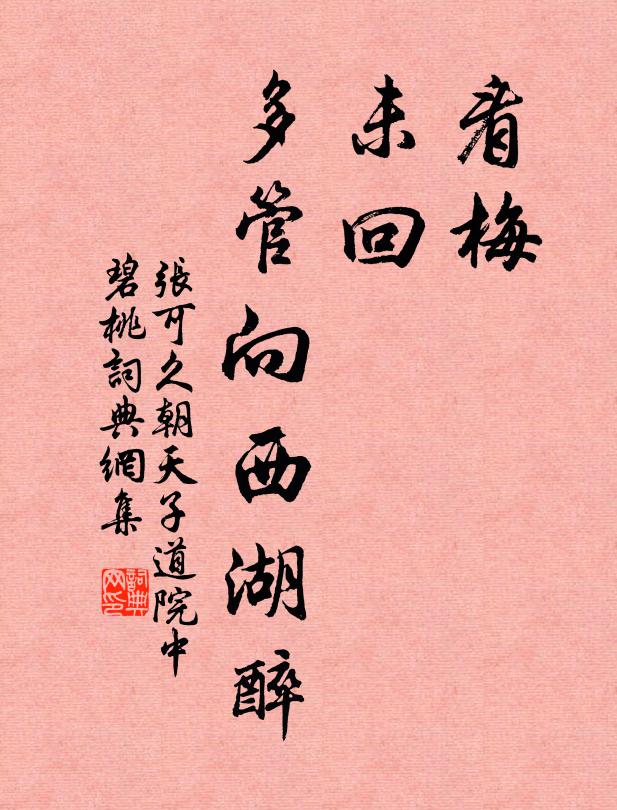 看梅
未回
多管向西湖醉
張可久朝天子道院中
碧桃詞典網集
詞典
网印